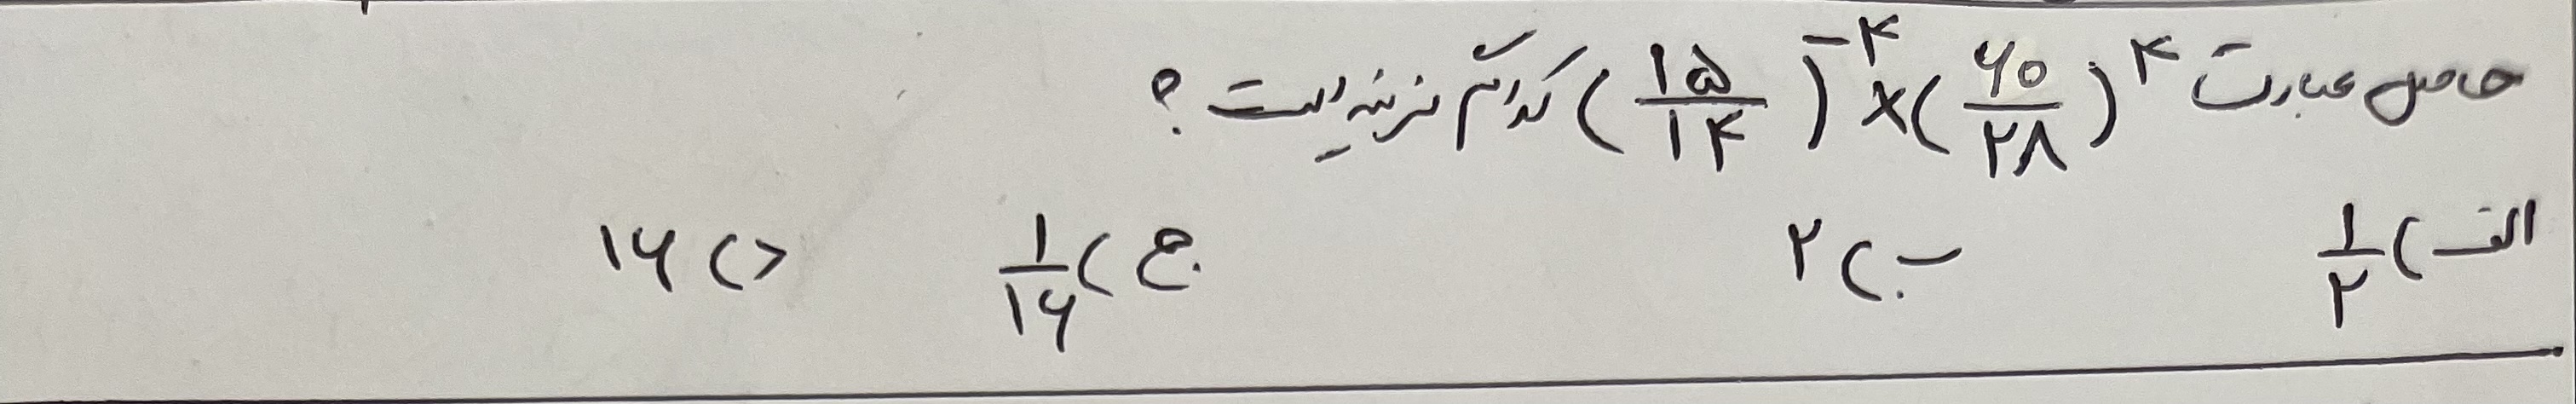 حاصل عبارت (۱۵/۱۴)^-۴ × (۶۰/۲۸)^۴ کدام گزینه است ؟
الف) ۱/۲ ب) ۲ ج) ۱/۱۶ د) ۱۶